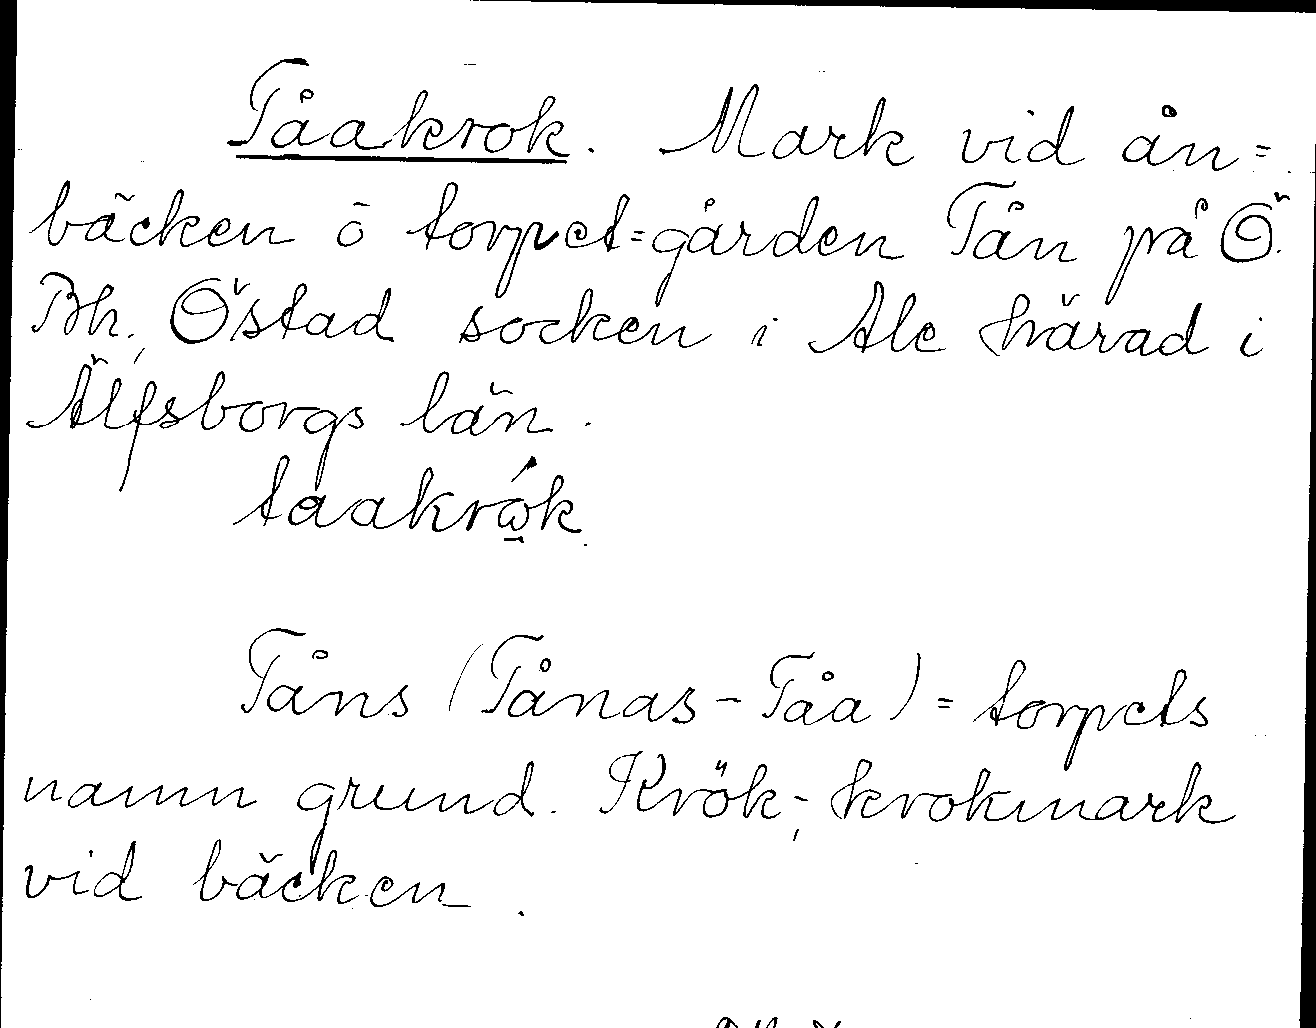 Tåakrok. Mark vid ån=
bäcken ō torpet=gården Tån på Ö.
Bh., Östad socken i Ale härad i
Älfsborgs län.
taakrók
Tåns (Tånas - Tåa) = torpets
namn grund. Krök-, krokmark
vid bäcken.